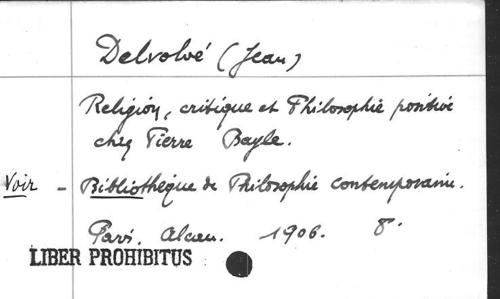 Delvolvé (Jean)
Religion, critique et Philosophie positive
chez Pierre Bayle.
Voir - Bibliothèque de Philosophie contemporaine.
Paris. Alcan. 1906. 8°.
LIBER PROHIBITUS